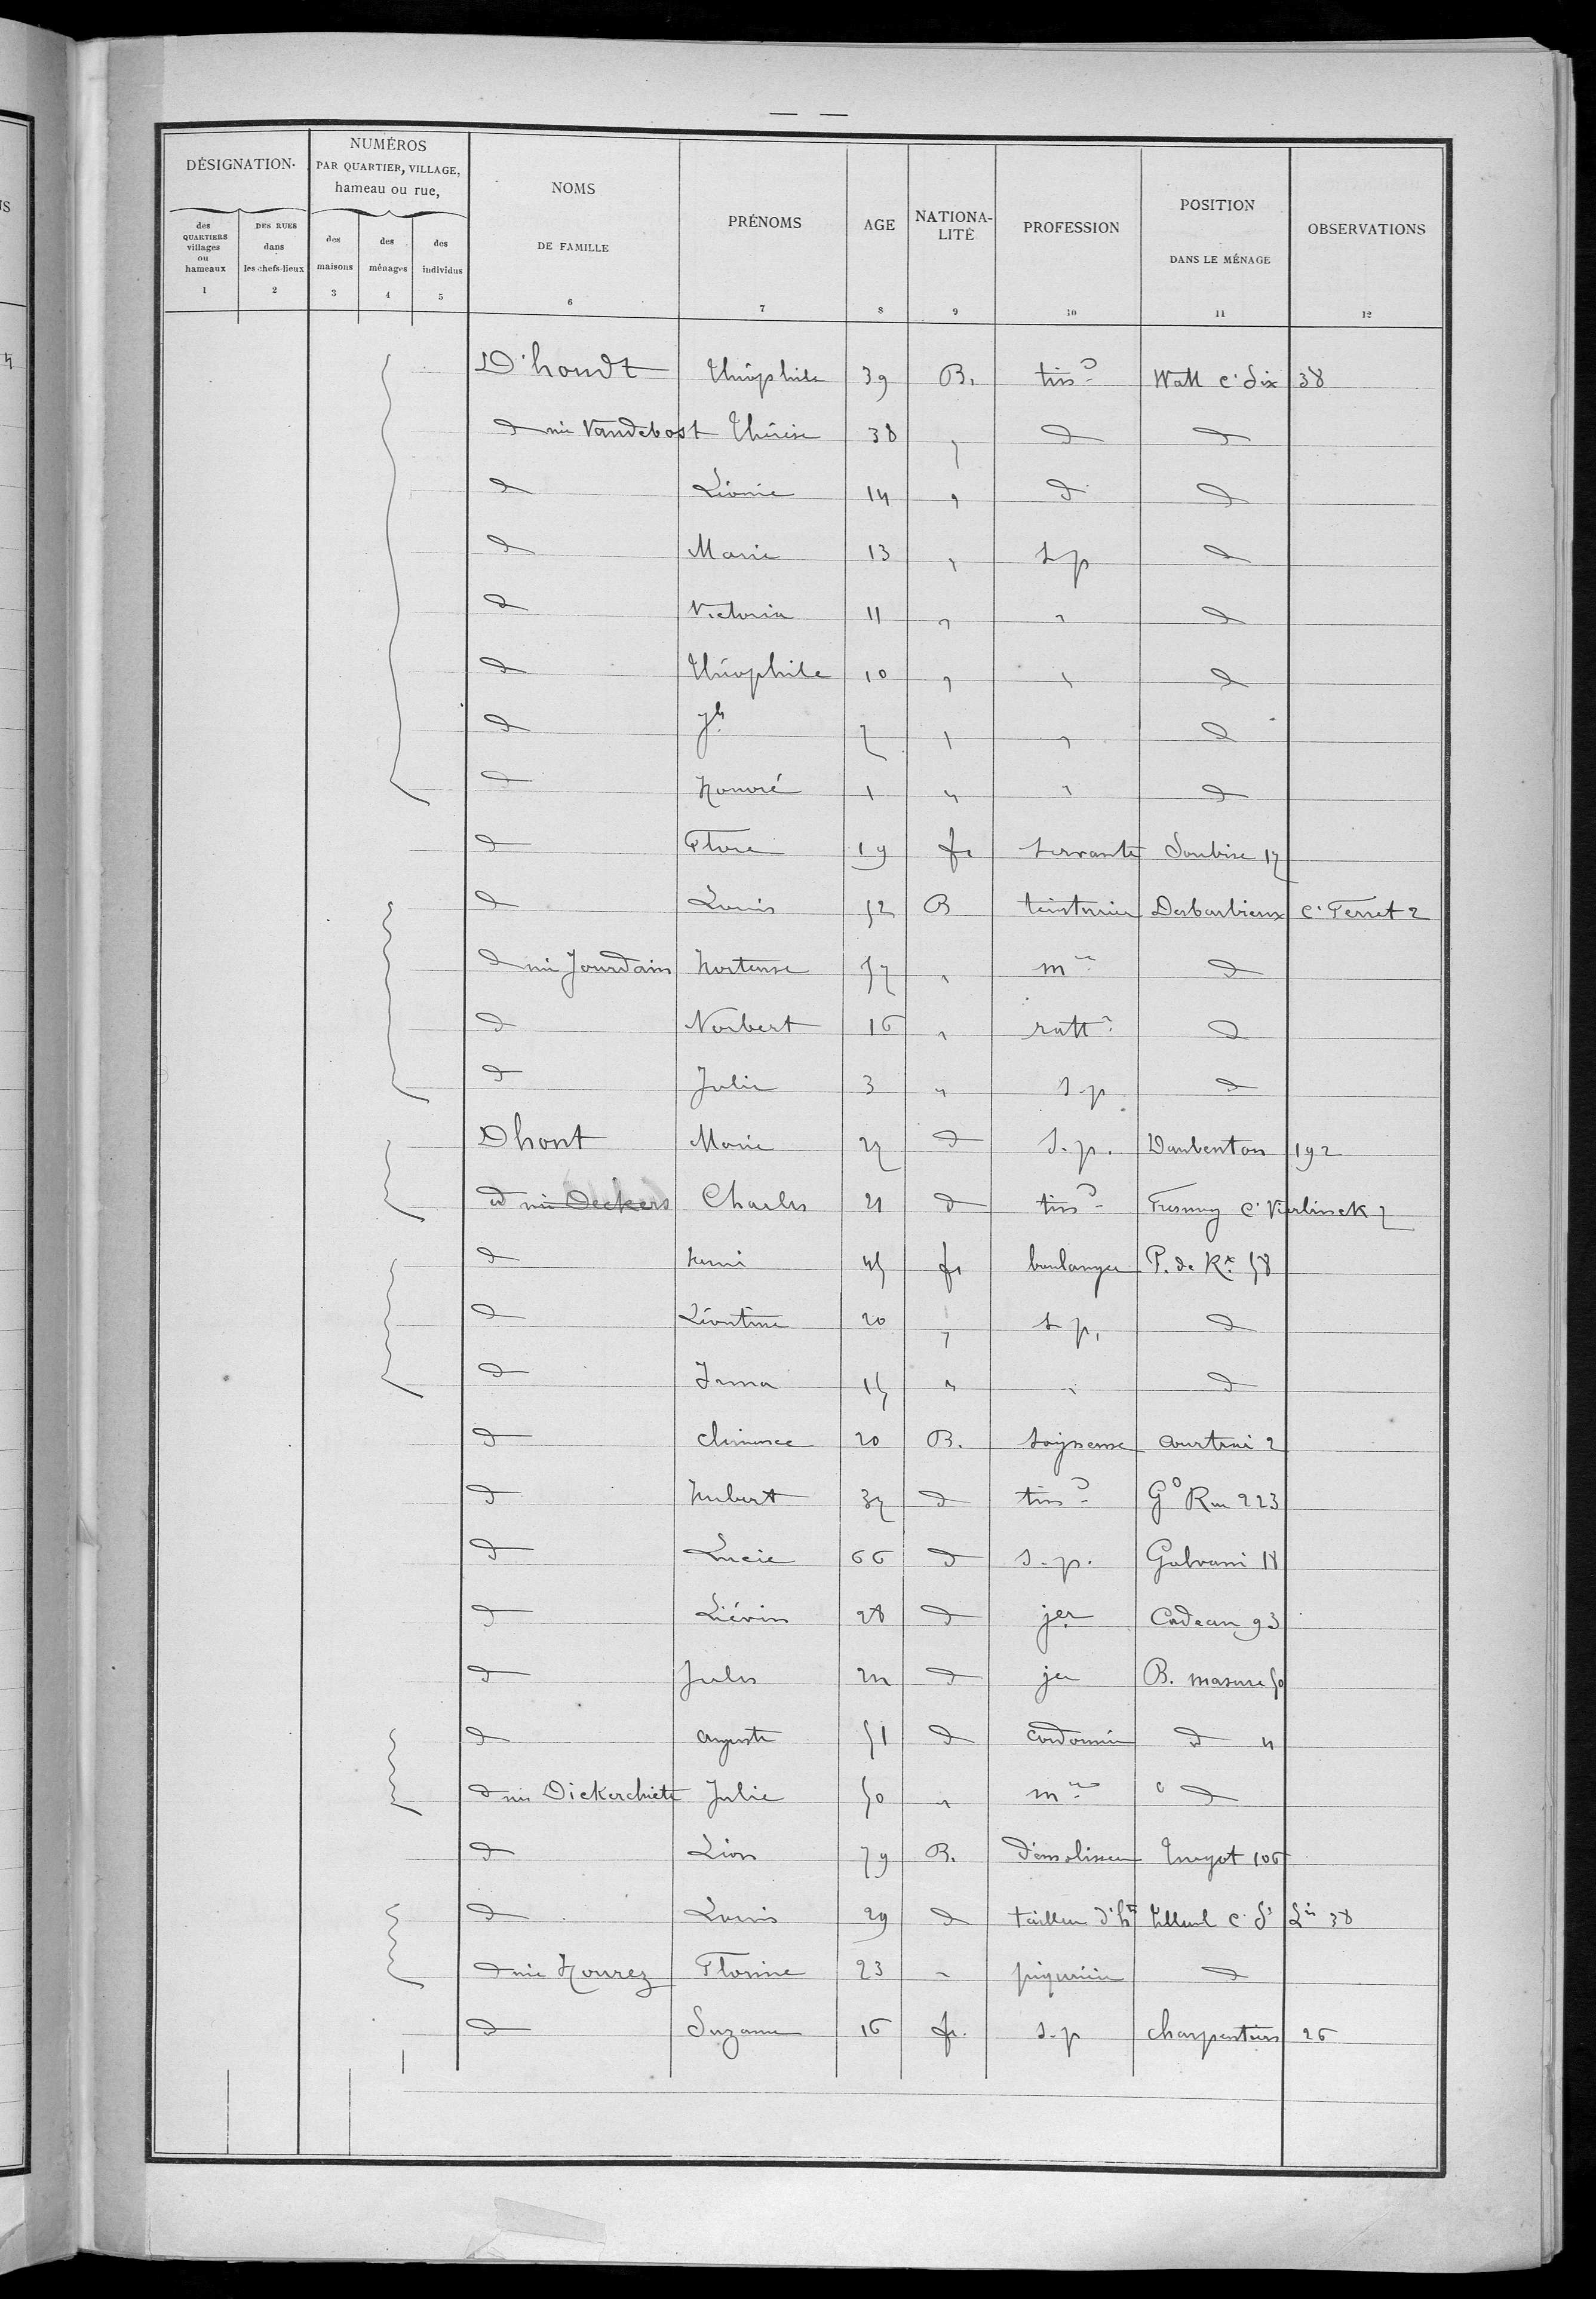 DÉSIGNATION.
des QUARTIERS villages ou hameaux
1
DES RUES dans les chefs-lieux
2
NUMÉROS
PAR QUARTIER, VILLAGE,
hameau ou rue,
des maisons
3
des ménages
4
des individus
5
NOMS
DE FAMILLE
6
PRÉNOMS
7
AGE
8
NATIONA-
LITÉ
9
PROFESSION
10
POSITION
DANS LE MÉNAGE
11
OBSERVATIONS
12
D'hondt Théophile 39 B. tissd Watt c. Dix 38
d née Vandebost Thérèse 38 " d d
d Léonie 14 " d d
d Marie 13 " s p d
d Victoria 11 " " d
d Théophile 10 " " d
d Jh 7 " " d
d Honoré 1 " " d
d Flore 19 fr servante Soubise 17
d Louis 52 B teinturier Desbarbieux c. Ferret 2
d née Jourdain Hortense 57 " mre d
d Norbert 16 " ratt d
d Julie 3 " s.p d
Dhont Marie 27 d s.p. Daubenton 192
d née Deckers Charles 21 d tissd Fresnoy c. Verlinck 7
d Henri 45 fr boulanger P. de Rx 58
d Léontine 20 " s p, d
d Irma 15 " " d
d Clémence 20 B. soigneuse Courtrai 2
d Hubert 37 d tissd Gde Rue 223
d Lucie 66 d s.p. Galvani 18
d Liévin 28 d jer Cadeau 93
d Jules 24 d jer B. masure 50
d Auguste 51 d cordonnier d 4
d née Diekerchiete Julie 50 " mre d
d Léon 79 B. démolisseur Turgot 106
d Louis 29 d tailleur d'hts tilleul c. St Lin 38
d née Hourez Florine 23 " piqurière d
d Suzanne 16 fr. s.p charpentiers 26